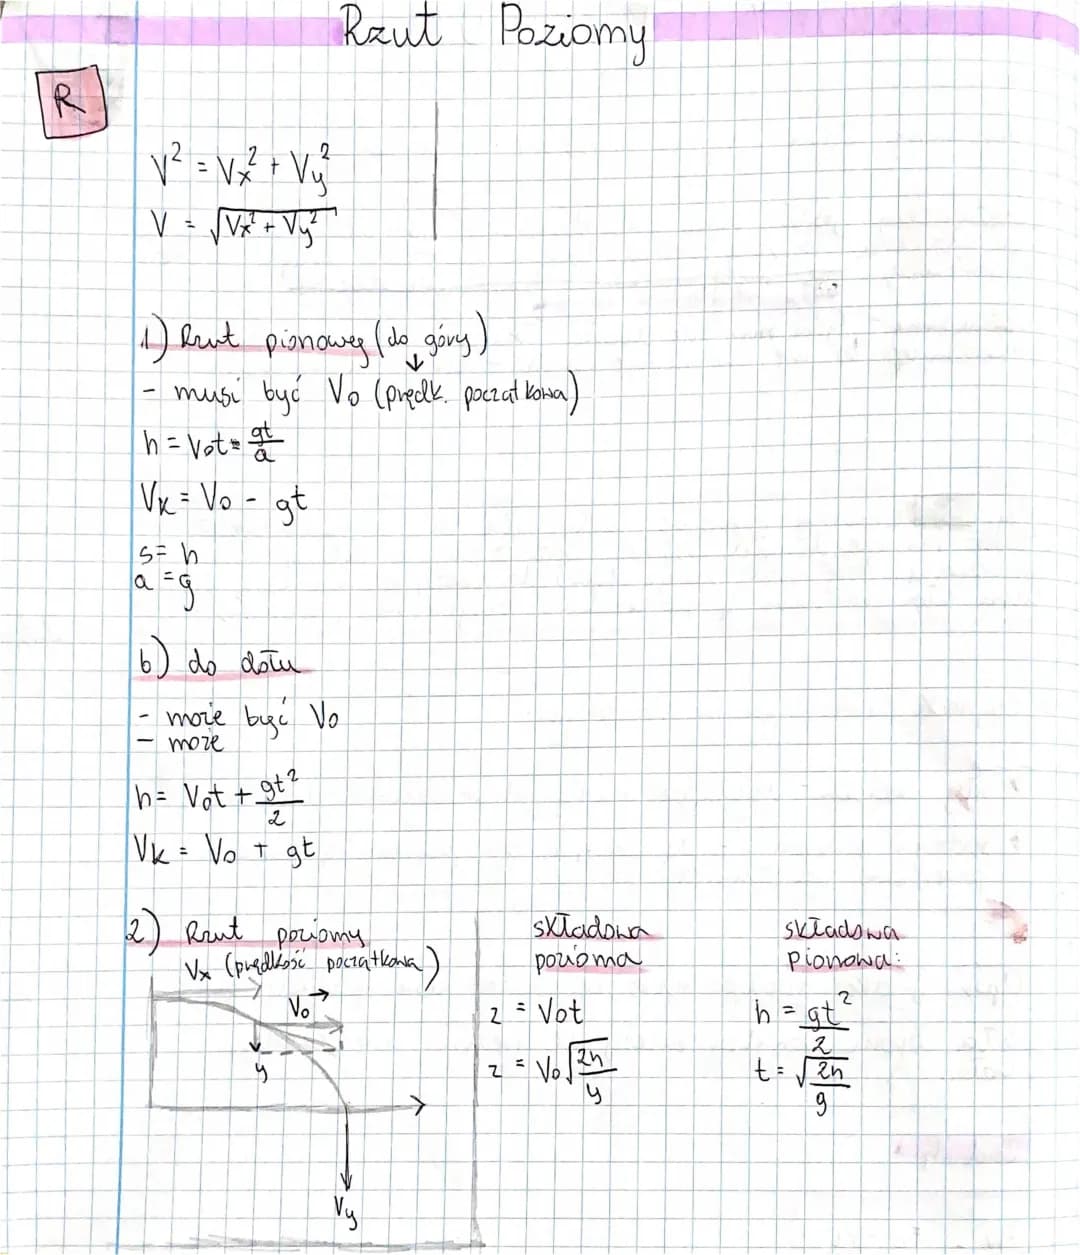 Rzut Poziomy
R
V² = Vx² + Vy²
V = √(Vx² + Vy²)
1) Rzut pionowy (do góry)
↓
- musi być Vo (prędk. początkowa)
h = Vot - gt/a
Vk = Vo - gt
s = h
a = g
b) do dołu
- może być Vo
- może
h = Vot + gt²/2
Vk = Vo + gt
2) Rzut poziomy
Vx (prędkość początkowa)
Vo →
y
Vy
składowa
pozioma
z = Vot
z = Vo√(2h/y)
składowa
pionowa:
h = gt²/2
t = √(2h/g)